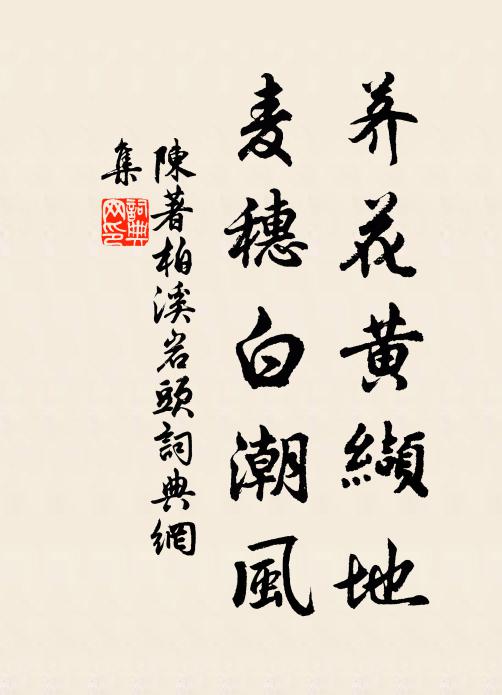 荞花黄纈地
麦穗白潮風
陳著柏溪岩頭詞典網
集
詞典
网印